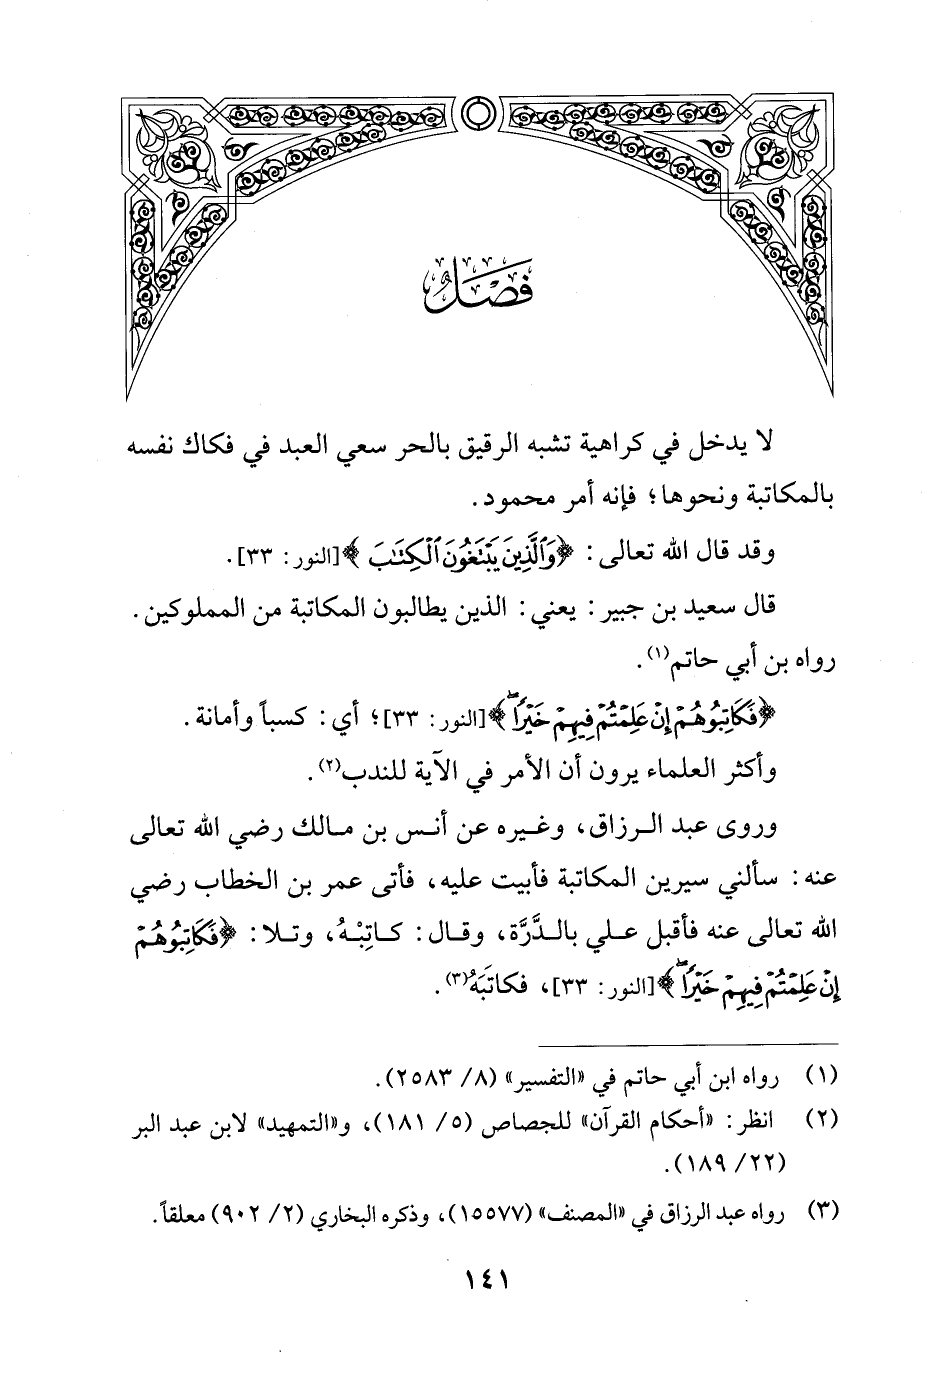 فَصْلٌ
لا يدخل في كراهية تشبه الرقيق بالحر سعي العبد في فكاك نفسه
بالمكاتبة ونحوها؛ فإنه أمر محمود.
وقد قال الله تعالى: ﴿وَٱلَّذِينَ يَبْتَغُونَ ٱلْكِتَٰبَ﴾ [النور: ٣٣].
قال سعيد بن جبير: يعني: الذين يطالبون المكاتبة من المملوكين.
رواه بن أبي حاتم(١).
﴿فَكَاتِبُوهُمْ إِنْ عَلِمْتُمْ فِيهِمْ خَيْرًا ۖ﴾ [النور: ٣٣]؛ أي: كسباً وأمانة.
وأكثر العلماء يرون أن الأمر في الآية للندب(٢).
وروى عبد الرزاق، وغيره عن أنس بن مالك رضي الله تعالى
عنه: سألني سيرين المكاتبة فأبيت عليه، فأتى عمر بن الخطاب رضي
الله تعالى عنه فأقبل علي بالدَّرَّة، وقال: كاتِبْهُ، وتلا: ﴿فَكَاتِبُوهُمْ
إِنْ عَلِمْتُمْ فِيهِمْ خَيْرًا ۖ﴾ [النور: ٣٣]، فكاتَبَهُ(٣).
(١) رواه ابن أبي حاتم في «التفسير» (٨/ ٢٥٨٣).
(٢) انظر: «أحكام القرآن» للجصاص (٥/ ١٨١)، و«التمهيد» لابن عبد البر
(٢٢/ ١٨٩).
(٣) رواه عبد الرزاق في «المصنف» (١٥٥٧٧)، وذكره البخاري (٢/ ٩٠٢) معلقاً.
١٤١